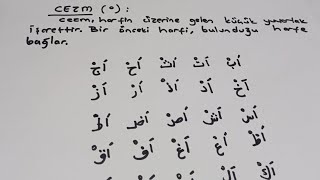 CEZM (°) :
cezm, harfin üzerine gelen küçük yuvarlak
işarettir. Bir önceki harfi, bulunduğu harfe
bağlar.
اَبْ اَتْ اَثْ اَجْ اَحْ
اَخْ اَدْ اَذْ اَرْ اَزْ
اَسْ اَشْ اَصْ اَضْ اَطْ
اَظْ اَعْ اَغْ اَفْ اَقْ
اَكْ اَلْ